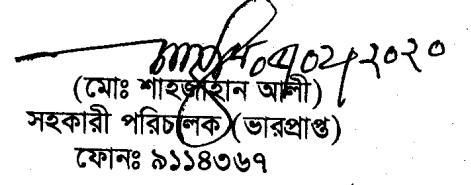 ০৭/০২/২০২০
(মোঃ শাহজাহান আলী)
সহকারী পরিচালক (ভারপ্রাপ্ত)
ফোনঃ ৯১১৪৩৬৭